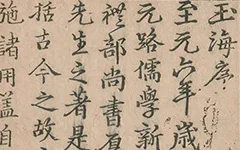 玉海序
至元六年歲
元路儒學新
禮部尚書
先生之者是
括古今之故
施諸用盖自